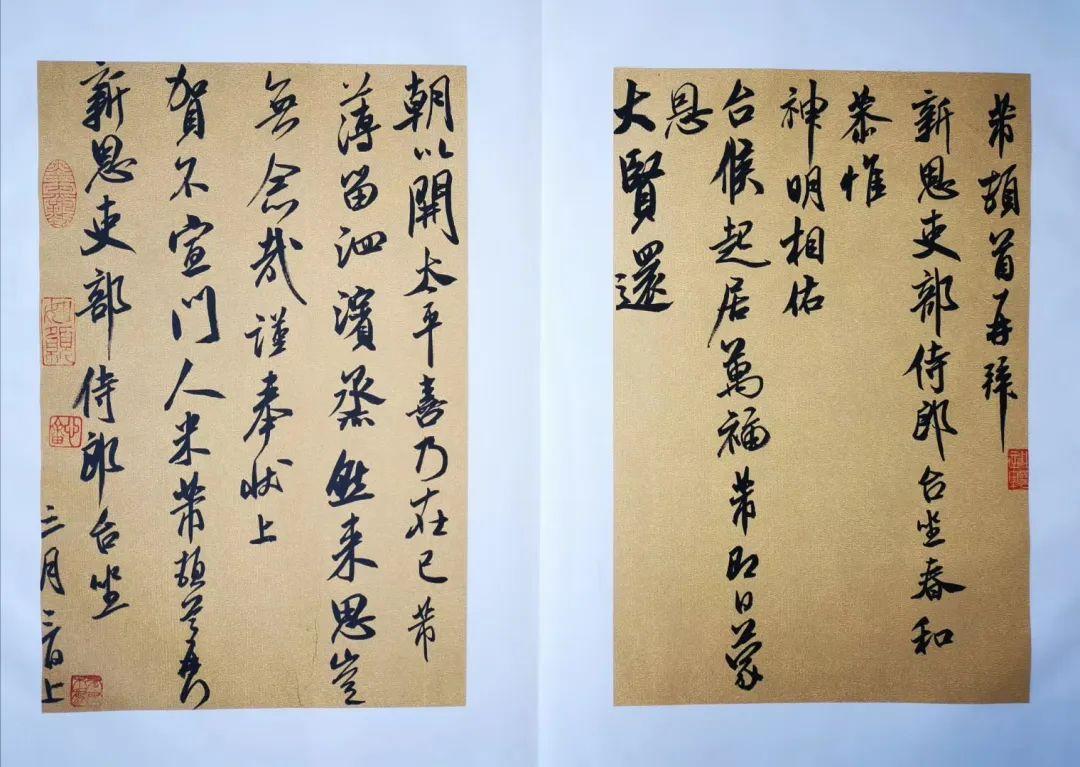 芾頓首再拜
新恩吏部侍郎台坐春和
恭惟
神明相佑
台候起居萬福芾即日蒙
恩
大賢還
朝以開太平喜乃在已芾
薄留泗濱烝然来思豈
無念哉謹奉狀上
賀不宣門人米芾頓首再拜
新恩吏部侍郎台坐
三月三日上